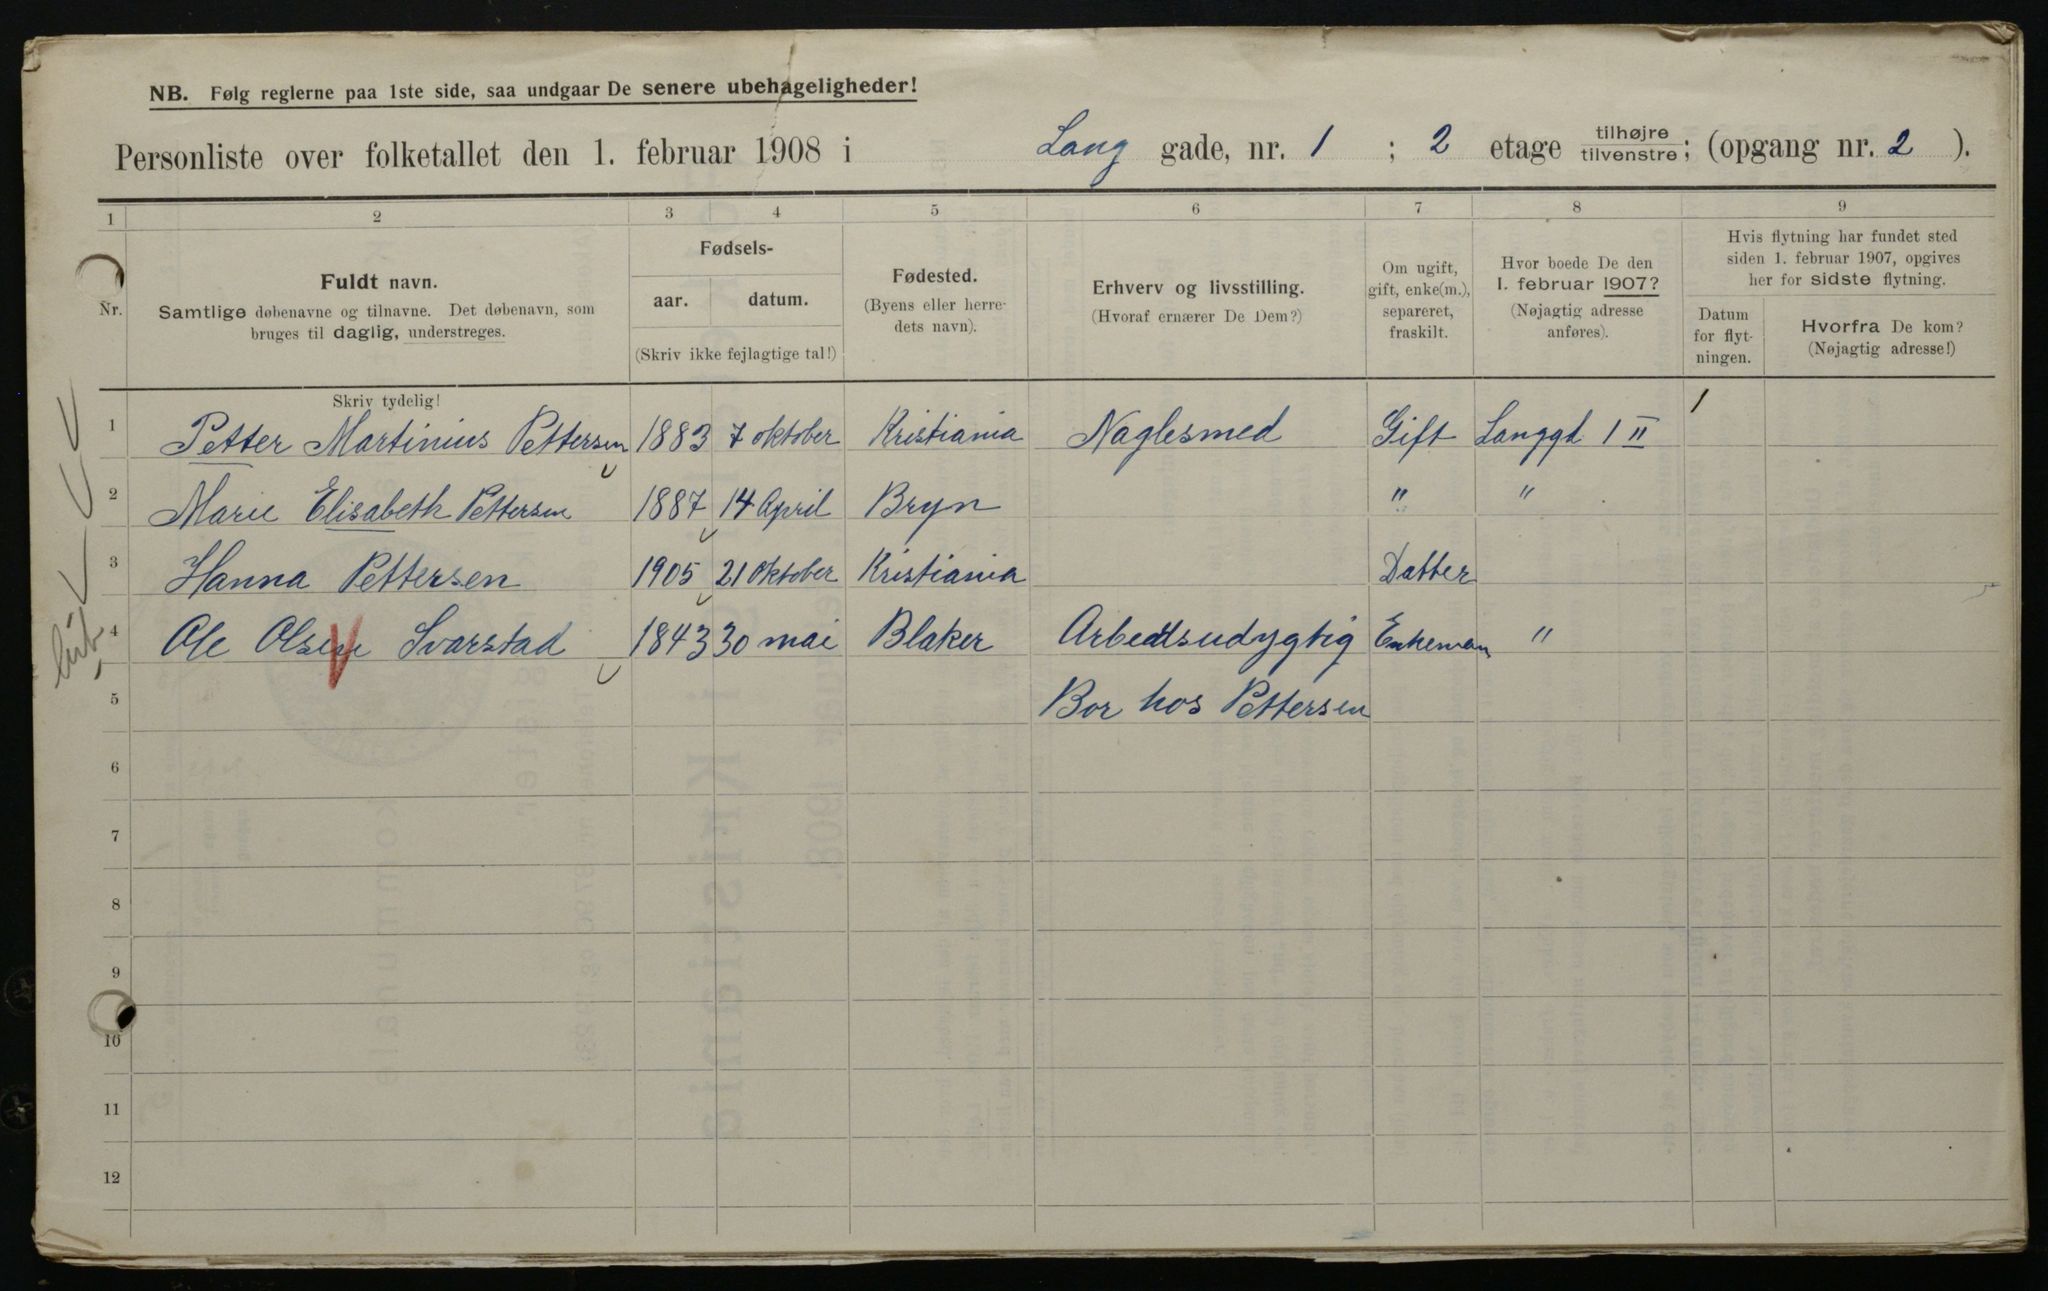 NB. Følg reglerne paa 1ste side, saa undgaar De senere ubehageligheder!
Personliste over folketallet den 1. februar 1908 i Lang gade, nr. 1 ; 2 etage tilhøjre tilvenstre; (opgang nr. 2 ).
1 2 3 4 5 6 7 8 9
Nr.
Fuldt navn.
Samtlige døbenavne og tilnavne. Det døbenavn, som
bruges til daglig, understreges.
Fødsels-
aar. datum.
(Skriv ikke fejlagtige tal!)
Fødested.
(Byens eller herre-
dets navn).
Erhverv og livsstilling.
(Hvoraf ernærer De Dem?)
Om ugift,
gift, enke(m.),
separeret,
fraskilt.
Hvor boede De den
1. februar 1907?
(Nøjagtig adresse
anføres).
Hvis flytning har fundet sted
siden 1. februar 1907, opgives
her for sidste flytning.
Datum
for flyt-
ningen.
Hvorfra De kom?
(Nøjagtig adresse!)
Skriv tydelig!
1 Petter Martinius Pettersen 1883 7 oktober Kristiania Naglesmed Gift Langgd 1 II
2 Marie Elisabeth Pettersen 1887 14 April Bryn " "
3 Hanna Pettersen 1905 21 oktober Kristiania Datter
4 Ole Olsen Svarstad 1843 30 mai Blaker Arbedsudygtig Enkeman "
5 Bor hos Pettersen
6
7
8
9
10
11
12